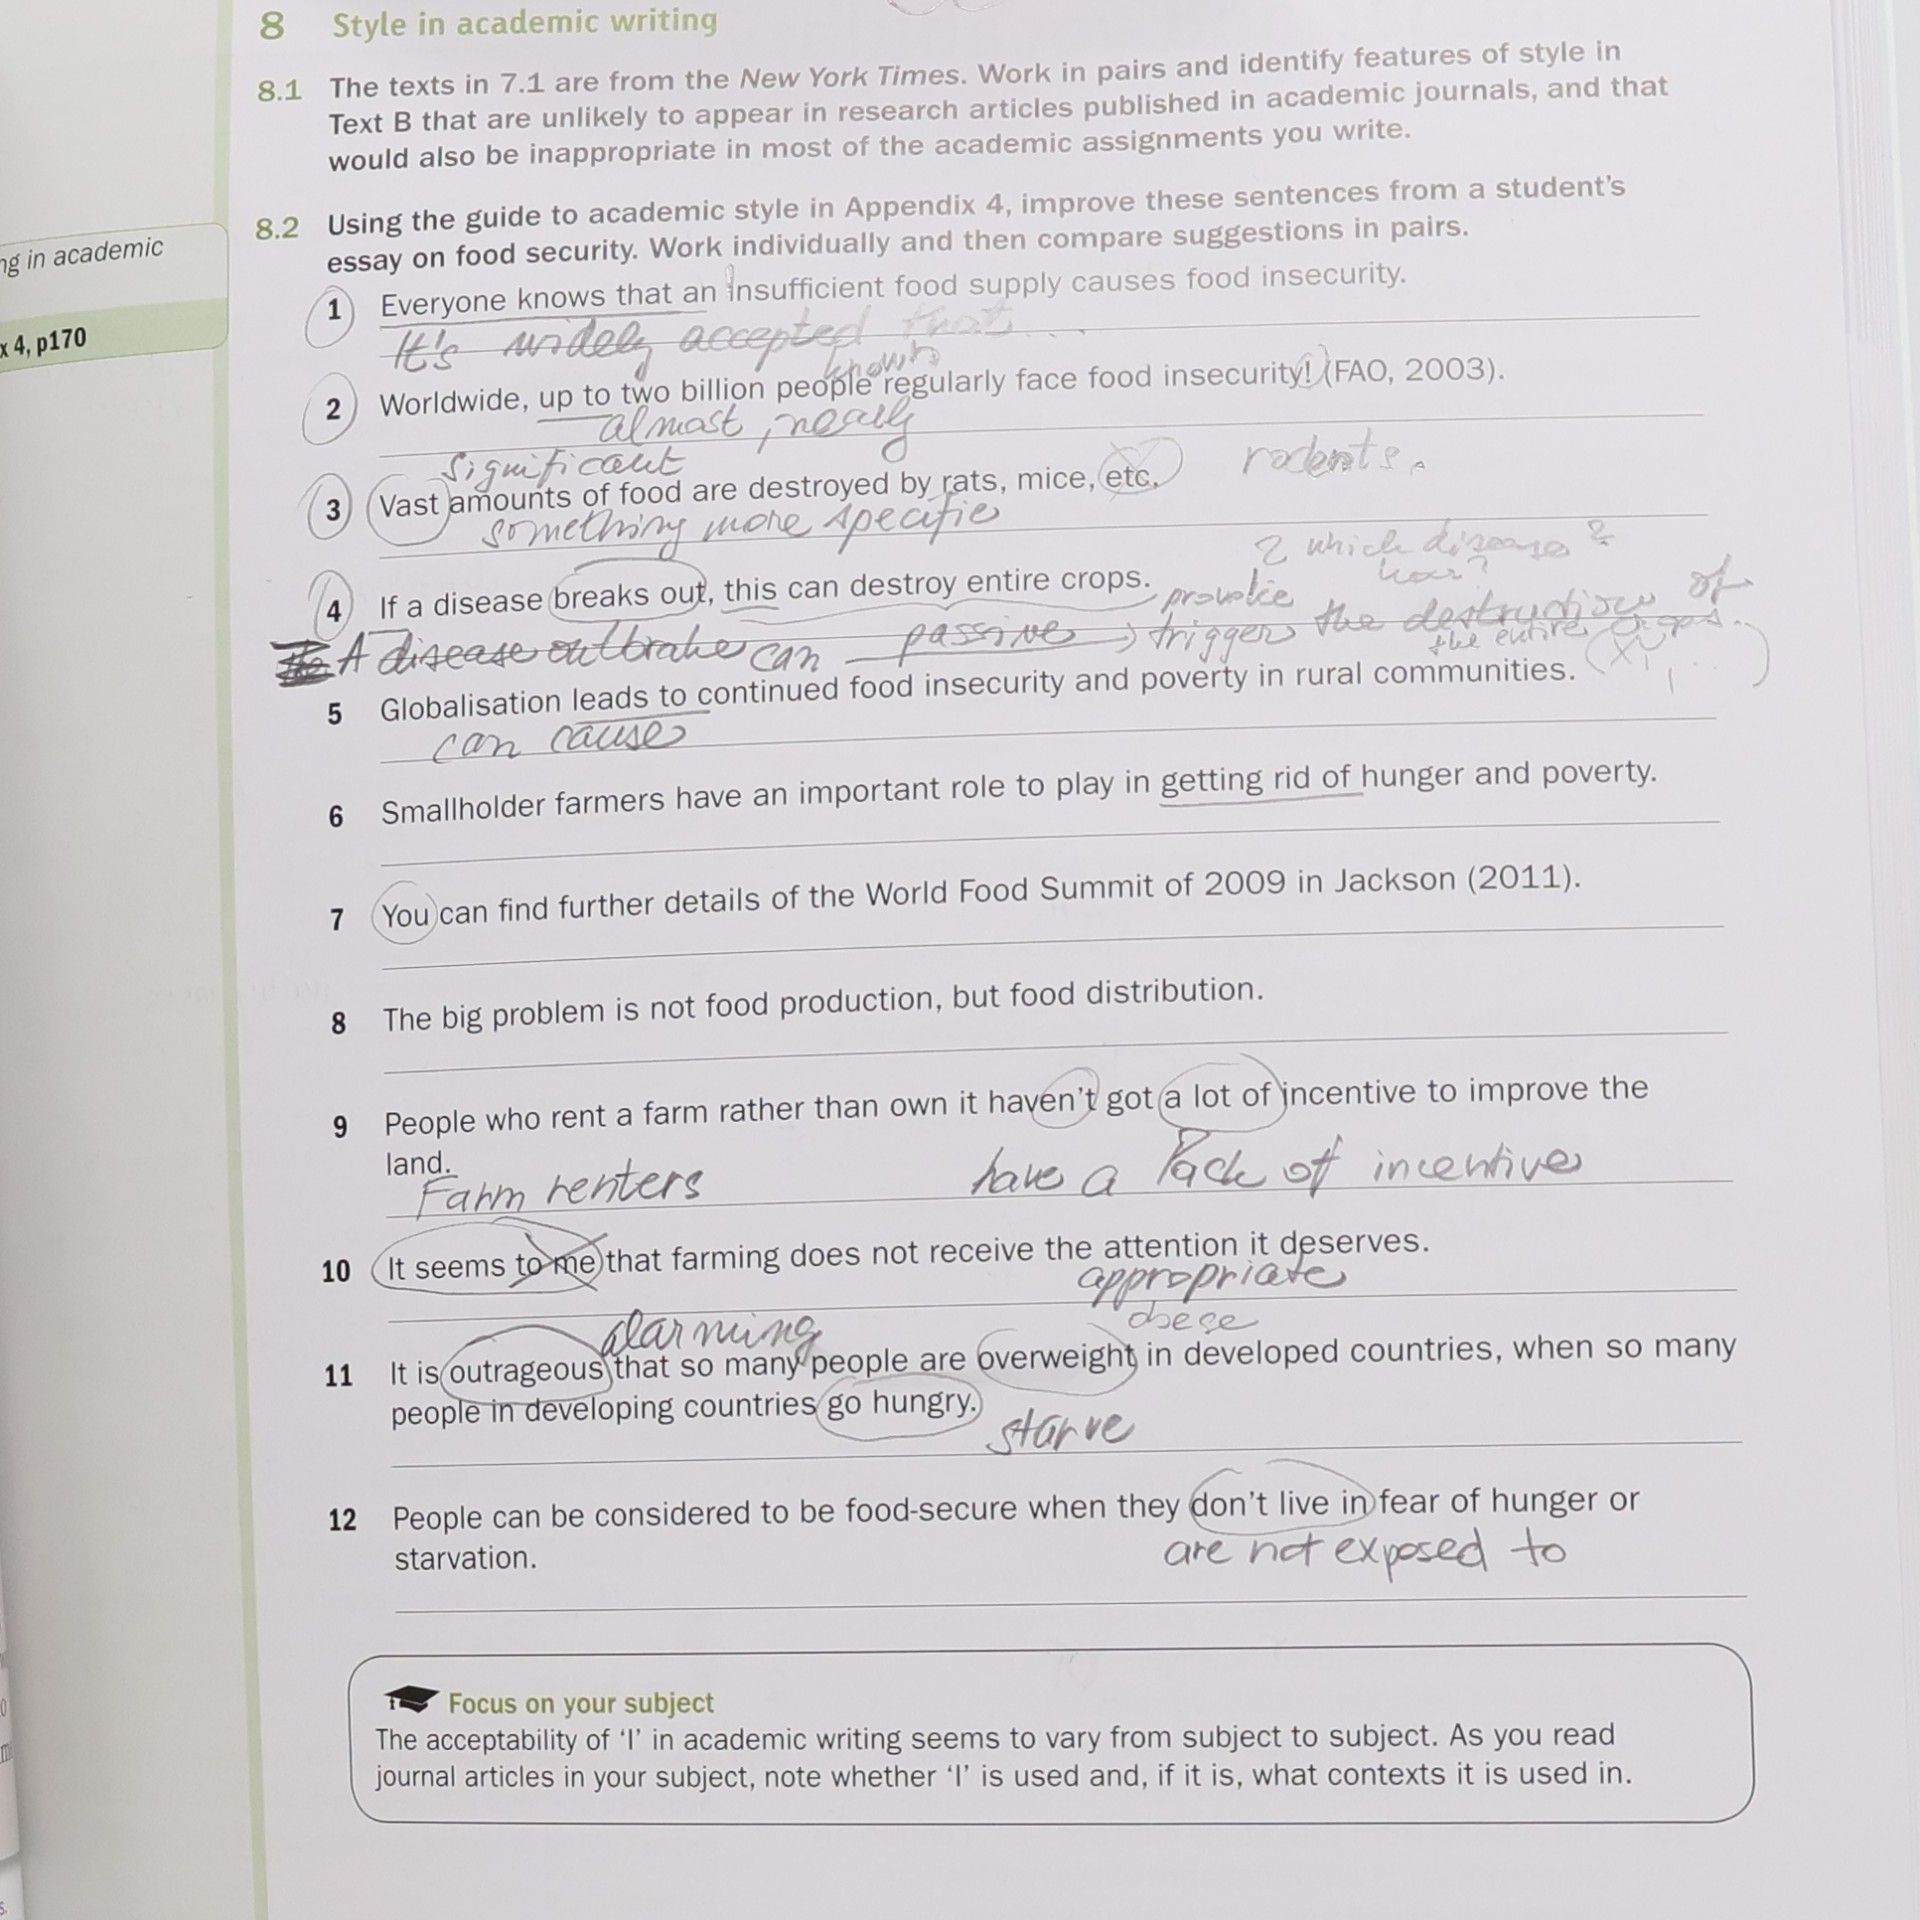 8 Style in academic writing
8.1 The texts in 7.1 are from the New York Times. Work in pairs and identify features of style in
Text B that are unlikely to appear in research articles published in academic journals, and that
would also be inappropriate in most of the academic assignments you write.
8.2 Using the guide to academic style in Appendix 4, improve these sentences from a student's
essay on food security. Work individually and then compare suggestions in pairs.
ng in academic
x 4, p170
1 Everyone knows that an insufficient food supply causes food insecurity.
It's widely accepted that ...
known
2 Worldwide, up to two billion people regularly face food insecurity! (FAO, 2003).
almost, nearly
significant
rodents.
3 Vast amounts of food are destroyed by rats, mice, etc.
something more specific
? which disease ?
how?
4 If a disease breaks out, this can destroy entire crops.
provoke
A disease outbrake can passive → trigger the destruction of
the entire crops..
5 Globalisation leads to continued food insecurity and poverty in rural communities.
can cause
6 Smallholder farmers have an important role to play in getting rid of hunger and poverty.
7 You can find further details of the World Food Summit of 2009 in Jackson (2011).
8 The big problem is not food production, but food distribution.
9 People who rent a farm rather than own it haven't got a lot of incentive to improve the
land.
Farm renters have a lack of incentive
10 It seems to me that farming does not receive the attention it deserves.
appropriate
alarming
obese
11 It is outrageous that so many people are overweight in developed countries, when so many
people in developing countries go hungry.
starve
12 People can be considered to be food-secure when they don't live in fear of hunger or
starvation.
are not exposed to
Focus on your subject
The acceptability of 'I' in academic writing seems to vary from subject to subject. As you read
journal articles in your subject, note whether 'I' is used and, if it is, what contexts it is used in.